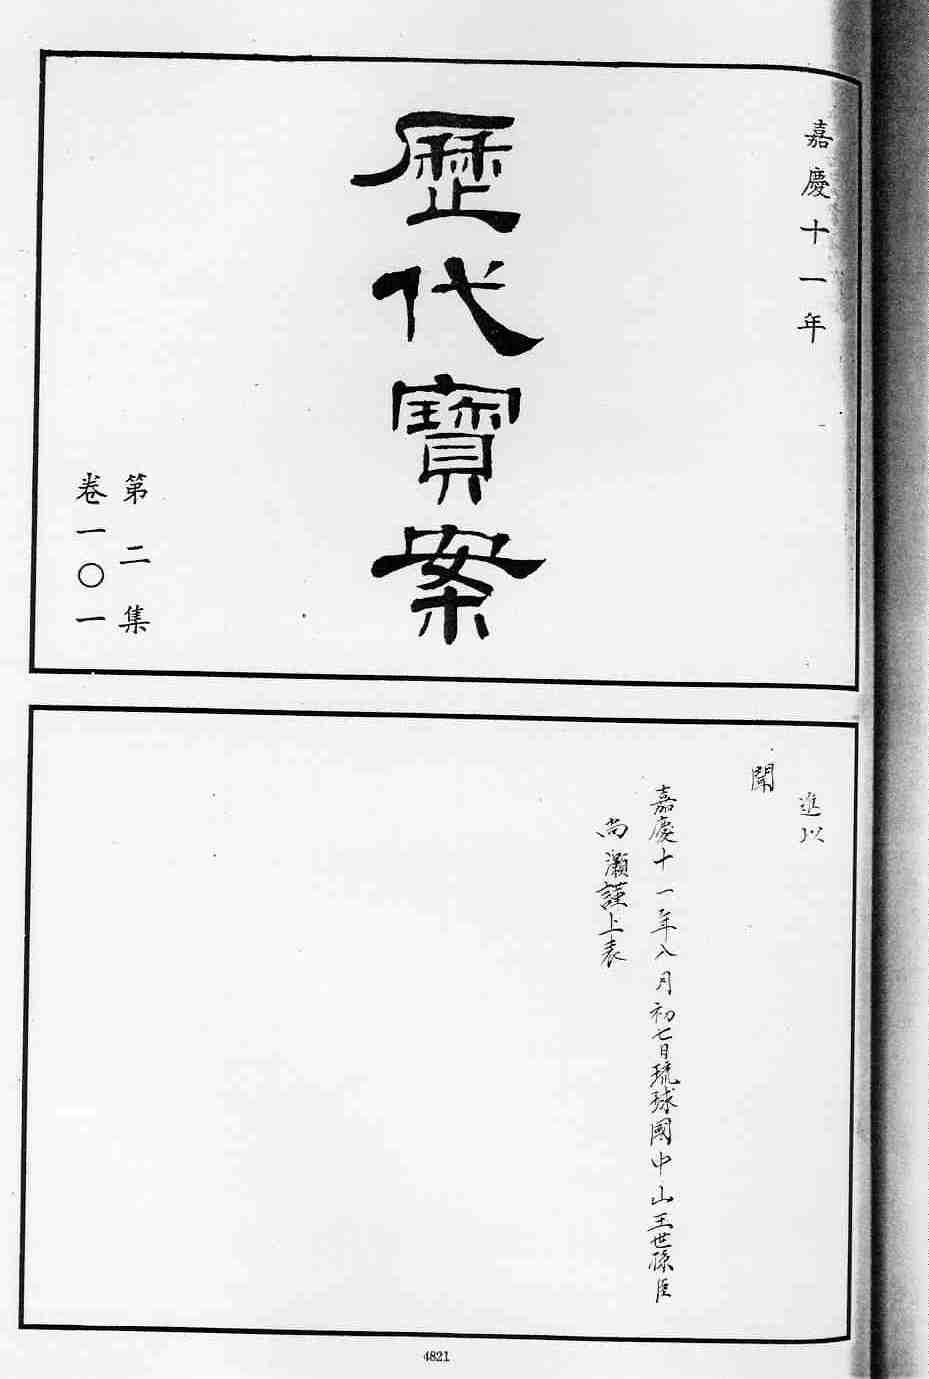 嘉慶十一年
歷代寶案
第二集
卷一〇一
進以
聞
嘉慶十一年八月初七日琉球國中山王世孫臣
尚灝謹上表
4821